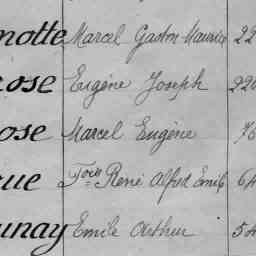 notte Marcel Gaston Maurice 22
rose Eugène Joseph 220
ose Marcel Eugène 76
que Fois René Alfred Emile 64
unay Emile Arthur 54